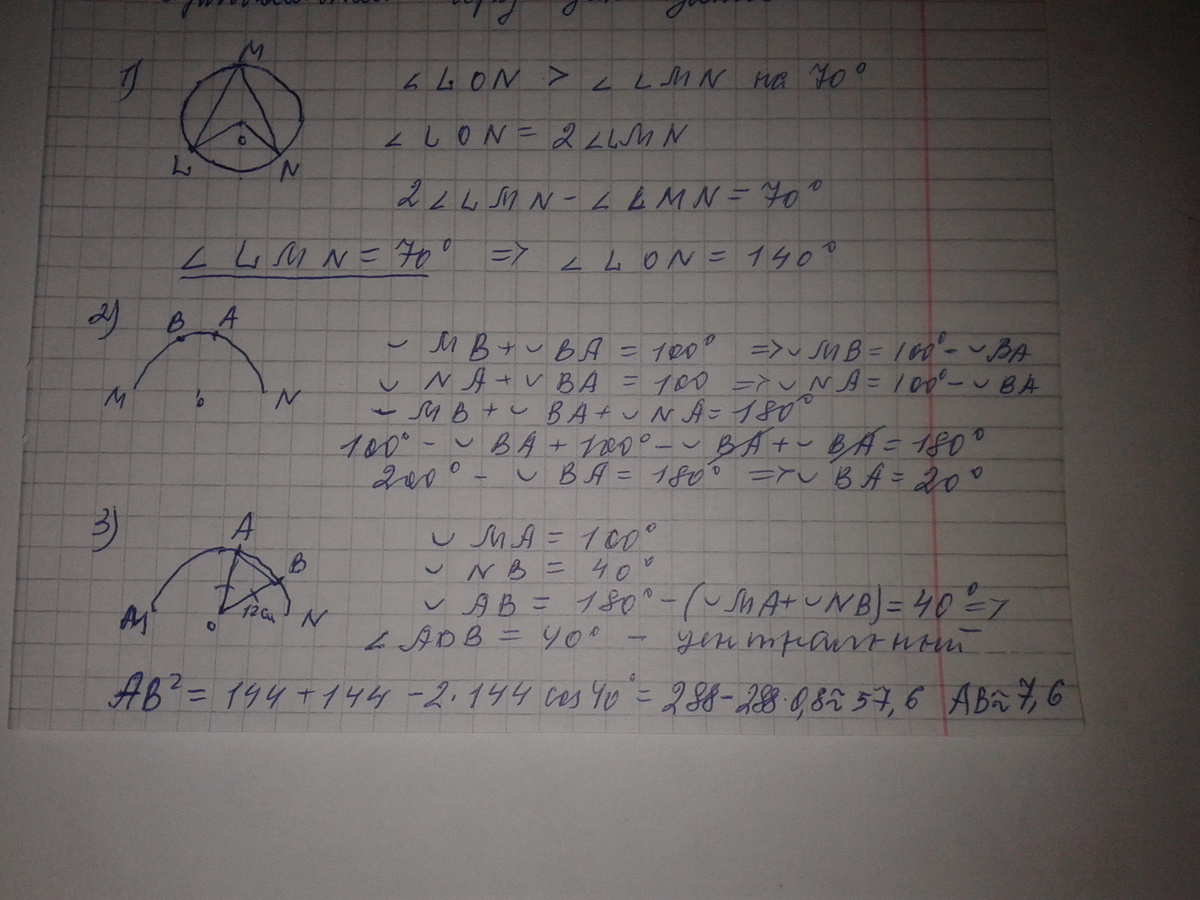 1) M L O N ∠LON > ∠LMN на 70°
∠LON = 2∠LMN
2∠LMN - ∠LMN = 70°
∠LMN = 70° => ∠LON = 140°
2) B A M O N ◡MB + ◡BA = 100° => ◡MB = 100° - ◡BA
◡NA + ◡BA = 100 => ◡NA = 100° - ◡BA
◡MB + ◡BA + ◡NA = 180°
100° - ◡BA + 100° - ◡BA + ◡BA = 180°
200° - ◡BA = 180° => ◡BA = 20°
3) A B M O 12см N ◡MA = 100°
◡NB = 40°
◡AB = 180° - (◡MA + ◡NB) = 40° =>
∠AOB = 40° - центральный
AB² = 144 + 144 - 2·144 cos40° = 288 - 288·0,8 ≈ 57,6 AB ≈ 7,6